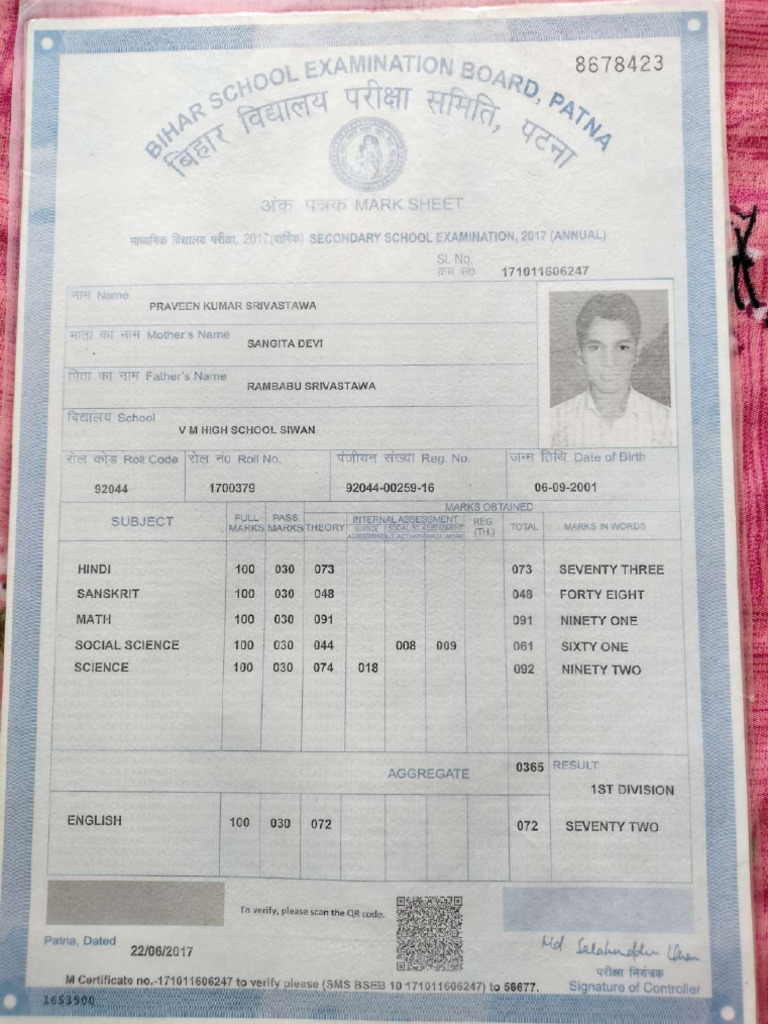 8678423
BIHAR SCHOOL EXAMINATION BOARD, PATNA
बिहार विद्यालय परीक्षा समिति, पटना
अंक पत्रक MARK SHEET
माध्यमिक विद्यालय परीक्षा, 2017(वार्षिक) SECONDARY SCHOOL EXAMINATION, 2017 (ANNUAL)
Sl. No.
क्रम सं० 171011606247
नाम Name PRAVEEN KUMAR SRIVASTAWA
माता का नाम Mother's Name SANGITA DEVI
पिता का नाम Father's Name RAMBABU SRIVASTAWA
विद्यालय School V M HIGH SCHOOL SIWAN
रोल कोड Roll Code रोल नं0 Roll No. पंजीयन संख्या Reg. No. जन्म तिथि Date of Birth
92044 1700379 92044-00259-16 06-09-2001
MARKS OBTAINED
SUBJECT FULL MARKS PASS MARKS THEORY INTERNAL ASSESSMENT REG. (TH.) TOTAL MARKS IN WORDS
HINDI 100 030 073 073 SEVENTY THREE
SANSKRIT 100 030 048 048 FORTY EIGHT
MATH 100 030 091 091 NINETY ONE
SOCIAL SCIENCE 100 030 044 008 009 061 SIXTY ONE
SCIENCE 100 030 074 018 092 NINETY TWO
AGGREGATE 0365 RESULT
1ST DIVISION
ENGLISH 100 030 072 072 SEVENTY TWO
To verify, please scan the QR code.
Patna, Dated 22/06/2017
Md Salahuddin Khan
परीक्षा नियंत्रक
Signature of Controller
M Certificate no.-171011606247 to verify please (SMS BSEB 10 171011606247) to 56677.
1653500